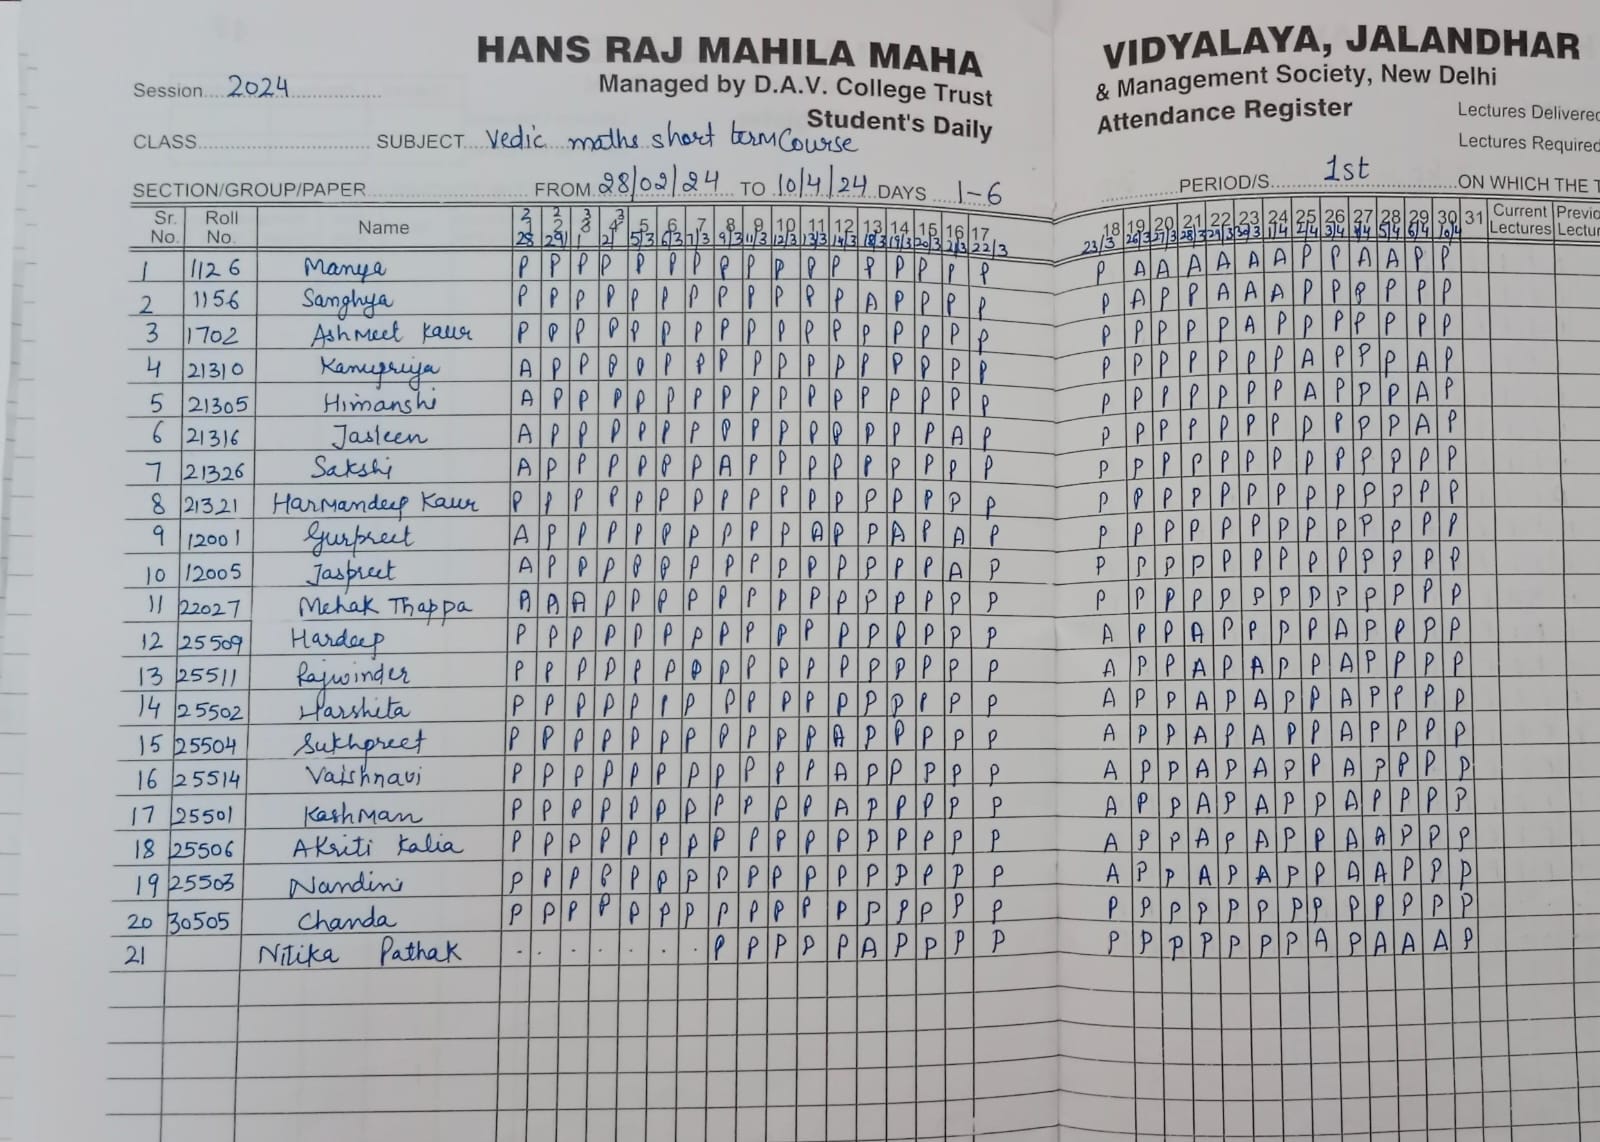 HANS RAJ MAHILA MAHA VIDYALAYA, JALANDHAR
Managed by D.A.V. College Trust & Management Society, New Delhi
Student's Daily Attendance Register
Session 2024
Lectures Delivered
CLASS SUBJECT Vedic maths short term Course
Lectures Required
SECTION/GROUP/PAPER FROM 28/02/24 TO 10/4/24 DAYS 1-6 PERIOD/S 1st ON WHICH THE
Sr. No. Roll No. Name 5 6 7 8 9 10 11 12 13 14 15 16 17 18 19 20 21 22 23 24 25 26 27 28 29 30 31 Current Lectures
28 29 1 2 5/3 6/3 7/3 9/3 11/3 12/3 13/3 14/3 18/3 19/3 20/3 21/3 22/3 23/3 26/3 27/3 28/3 29/3 30/3 1/4 2/4 3/4 4/4 5/4 6/4 10/4
1 1126 Manya P P P P P P P P P P P P P P P P P P A A A A A A P P A A P P
2 1156 Sanghya P P P P P P P P P P P P A P P P P P A P P A A A P P P P P P
3 1702 Ashmeet Kaur P P P P P P P P P P P P P P P P P P P P P P A P P P P P P P
4 21310 Kanupriya A P P P P P P P P P P P P P P P P P P P P P P P A P P P A P
5 21305 Himanshi A P P P P P P P P P P P P P P P P P P P P P P P A P P P A P
6 21316 Jasleen A P P P P P P P P P P P P P P A P P P P P P P P P P P P A P
7 21326 Sakshi A P P P P P P A P P P P P P P P P P P P P P P P P P P P P P
8 21321 Harmandeep Kaur P P P P P P P P P P P P P P P P P P P P P P P P P P P P P P
9 12001 Gurpreet A P P P P P P P P P A P P A P A P P P P P P P P P P P P P P
10 12005 Jaspreet A P P P P P P P P P P P P P P A P P P P P P P P P P P P P P
11 22027 Mehak Thappa A A A P P P P P P P P P P P P P P P P P P P P P P P P P P P
12 25509 Hardeep P P P P P P P P P P P P P P P P P A P P A P P P P A P P P P
13 25511 Rajwinder P P P P P P P P P P P P P P P P P A P P A P A P P A P P P P
14 25502 Harshita P P P P P P P P P P P P P P P P P A P P A P A P P A P P P P
15 25504 Sukhpreet P P P P P P P P P P P A P P P P P A P P A P A P P A P P P P
16 25514 Vaishnavi P P P P P P P P P P P A P P P P P A P P A P A P P A P P P P
17 25501 Kashman P P P P P P P P P P P A P P P P P A P P A P A P P A P P P P
18 25506 Akriti Kalia P P P P P P P P P P P P P P P P P A P P A P A P P A A P P P
19 25503 Nandini P P P P P P P P P P P P P P P P P A P P A P A P P A A P P P
20 30505 Chanda P P P P P P P P P P P P P P P P P P P P P P P P P P P P P P
21 Nitika Pathak . . . . . . . P P P P P A P P P P P P P P P P P A P A A A P